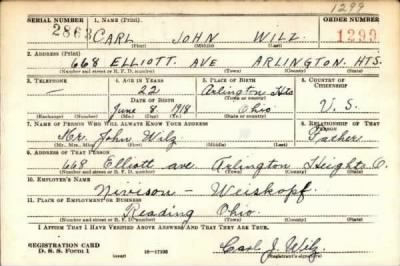 1299
SERIAL NUMBER 1. NAME (Print) ORDER NUMBER
2863 CARL JOHN WILZ 1299
(First) (Middle) (Last)
2. ADDRESS (Print)
668 ELLIOTT. AVE ARLINGTON. HTS.
(Number and street or R. F. D. number) (Town) (County) (State)
3. TELEPHONE 4. AGE IN YEARS 5. PLACE OF BIRTH 6. COUNTRY OF CITIZENSHIP
— 22 Arlington Hts
DATE OF BIRTH (Town or county)
June 8 1918 Ohio U. S.
(Exchange) (Number) (Mo.) (Day) (Yr.) (State or country)
7. NAME OF PERSON WHO WILL ALWAYS KNOW YOUR ADDRESS 8. RELATIONSHIP OF THAT PERSON
Mr. John Wilz Father
(Mr., Mrs., Miss) (First) (Middle) (Last)
9. ADDRESS OF THAT PERSON
668 Elliott ave Arlington Heights O.
(Number and street or R. F. D. number) (Town) (County) (State)
10. EMPLOYER'S NAME
Nivison - Weiskopf
11. PLACE OF EMPLOYMENT OR BUSINESS
Reading Ohio.
(Number and street or R. F. D. number) (Town) (County) (State)
I AFFIRM THAT I HAVE VERIFIED ABOVE ANSWERS AND THAT THEY ARE TRUE.
REGISTRATION CARD
D. S. S. Form 1 16-17105 Carl J. Wilz
(over) (Registrant's signature)